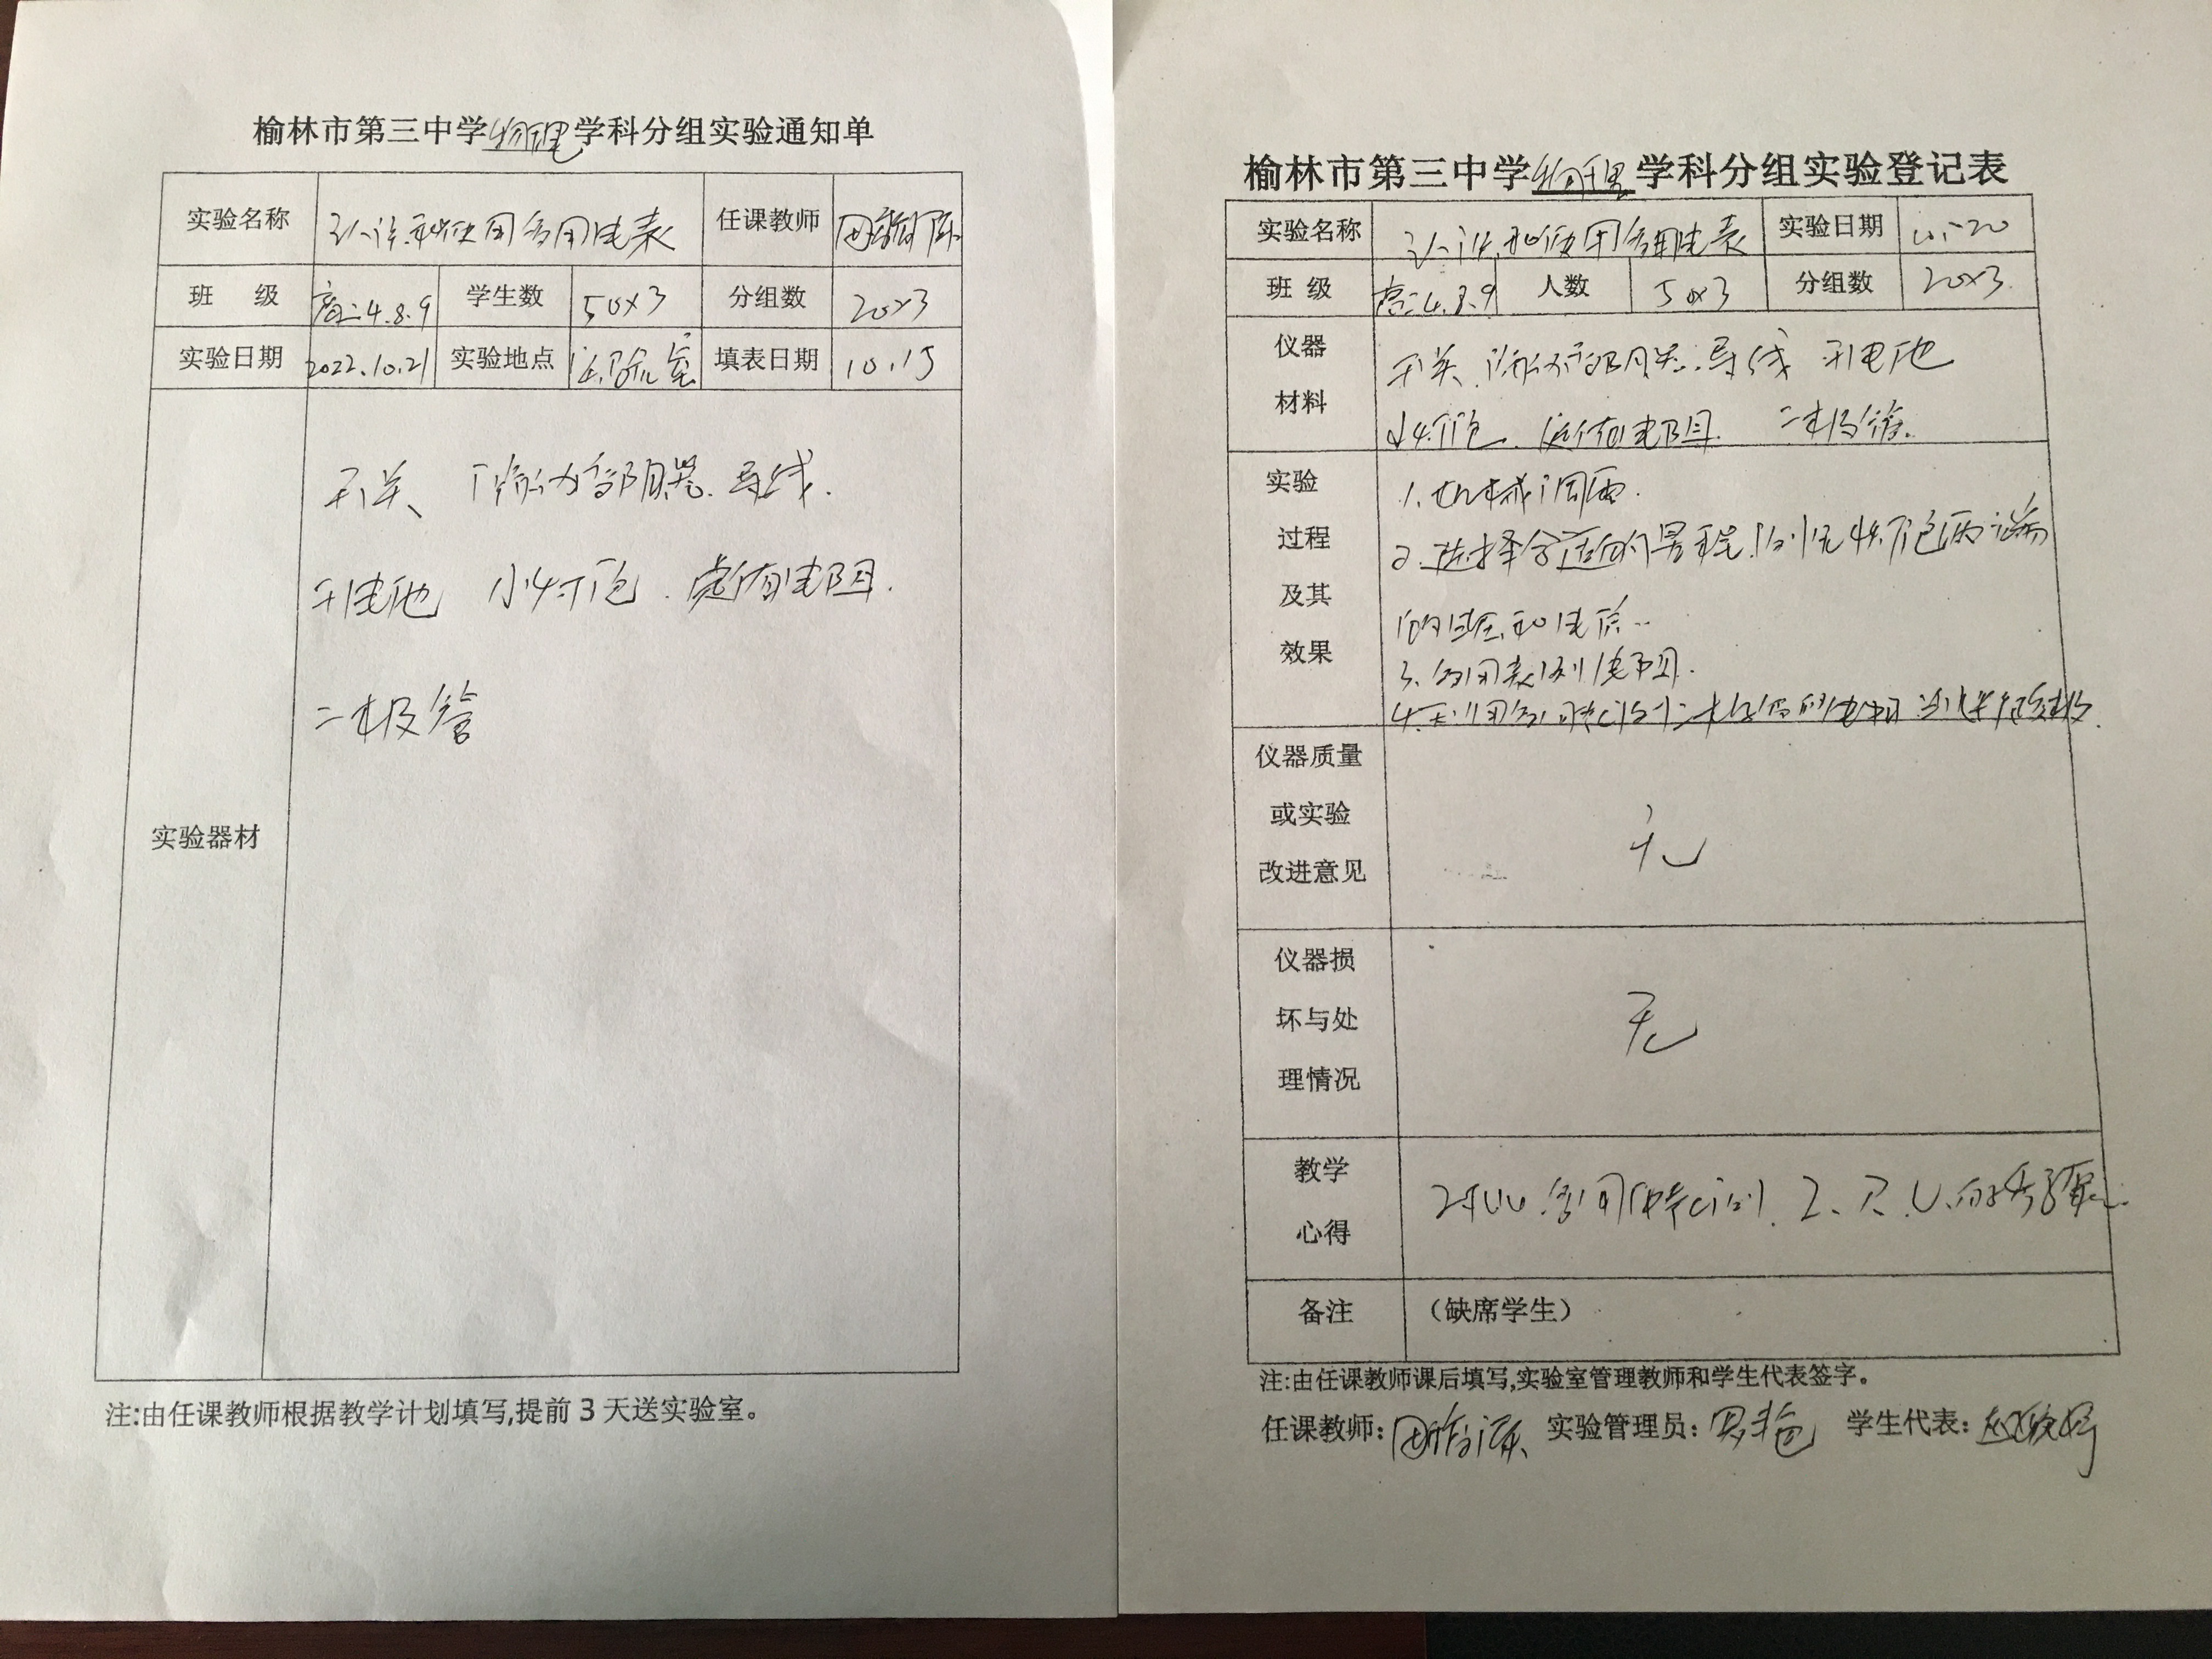 榆林市第三中学物理学科分组实验通知单
实验名称 认识和使用多用电表 任课教师
班 级 高二4.8.9 学生数 50×3 分组数 20×3
实验日期 2022.10.21 实验地点 实验室 填表日期 10.15
实验器材
开关、滑动变阻器.导线.
干电池 小灯泡.定值电阻.
二极管
注:由任课教师根据教学计划填写,提前3天送实验室。
榆林市第三中学物理学科分组实验登记表
实验名称 认识和使用多用电表 实验日期
班 级 高二4.8.9 人数 50×3 分组数 20×3
仪器材料
开关.滑动变阻器.导线 干电池
小灯泡.定值电阻. 二极管.
实验过程及其效果
1.机械调零.
2.选择合适的量程.测出灯泡两端
的电压和电流..
3.多用表测电阻.
4.
仪器质量或实验改进意见
无
仪器损坏与处理情况
无
教学心得
备注 (缺席学生)
注:由任课教师课后填写,实验室管理教师和学生代表签字。
任课教师: 实验管理员: 学生代表: